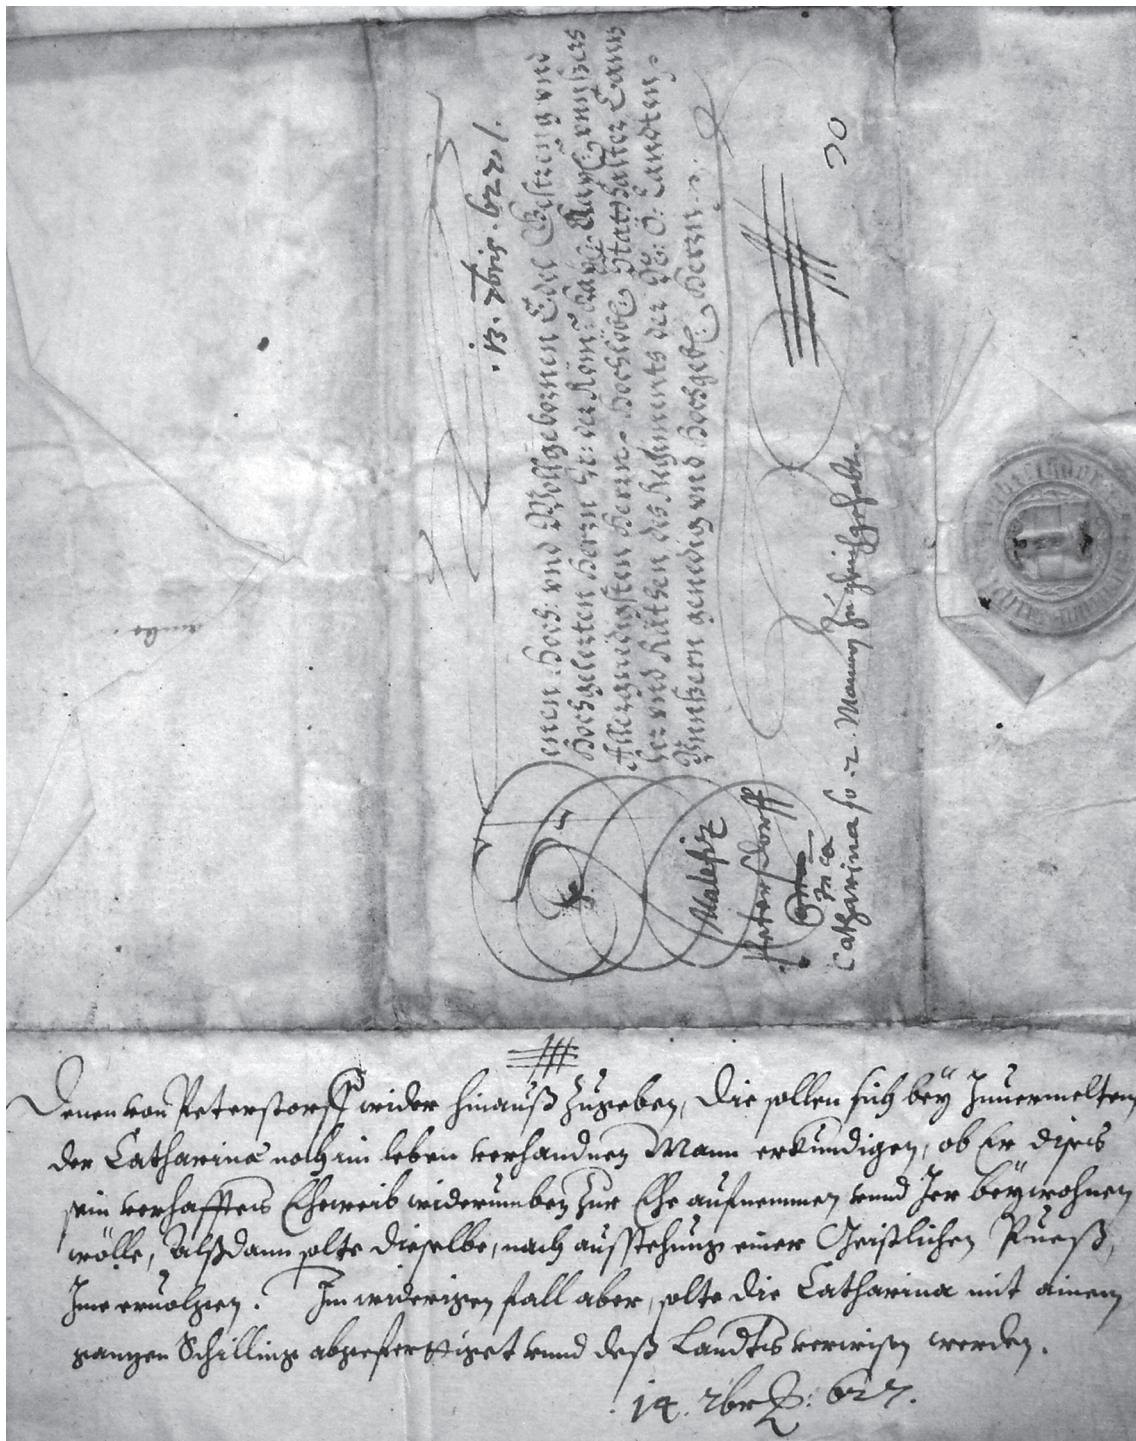 . 13. 7bris. 627 /.
enen Hoch: vnd Wollgebornen Edel Gestreng vnd
Hochgelerten Herrn Herrn der Röm: Kay:
Allergnedigsten Herrn Hochlöbl: Statthalter Cantz
ler vnd Räthen des Regiments der N: Ö: Landten.
Vnnsern genedig vnd Hochgeb: Herrn
Malefiz
Petersdorff
Catharina so .2. Männer zugleich gehabt.
Denen von Petersdorff wider hinauß zugeben, Die sollen sich bey Innermelten
der Catharina noch im leben verhandnen Mann erkundigen, ob Er dises
sein verhafftes Eheweib widerumben zur Ehe aufnemmen vnnd Jer beywohnen
wölle, Alßdann solte dieselbe, nach ausstehung einer Geistlichen Pueß,
Ime eruolgen. Im widerigen fall aber, solte die Catharina mit ainem
ganzen Schilling abgefertiget vnnd deß Landts verwisen werden.
14. 7br: 627.